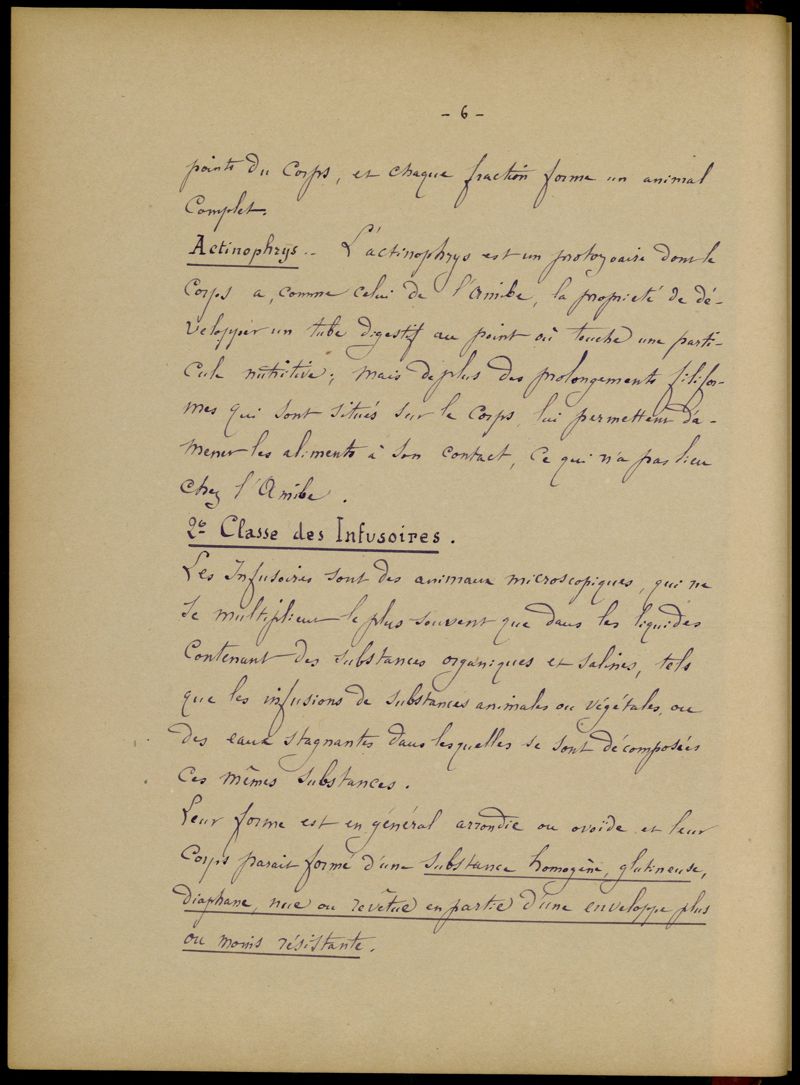 - 6 -
points du corps, et chaque fraction forme un animal
complet.
Actinophrys.. L'actinophrys est un protozoaire dont le
corps a, comme celui de l'Amibe, la propriété de dé-
velopper un tube digestif au point où touche une parti-
cule nutritive; mais de plus des prolongements filifor-
mes qui sont situés sur le corps, lui permettent d'a-
mener les aliments à son contact, ce qui n'a pas lieu
chez l'Amibe.
2e Classe des Infusoires.
Les Infusoires sont des animaux microscopiques, qui ne
se multiplient le plus souvent que dans les liquides
contenant des substances organiques et salines, tels
que les infusions de substances animales ou végétales, ou
des eaux stagnantes dans lesquelles se sont décomposées
ces mêmes substances.
Leur forme est en général arrondie ou ovoïde et leur
corps parait formé d'une substance homogène, glutineuse,
diaphane, nue ou revêtue en partie d'une enveloppe plus
ou moins résistante.